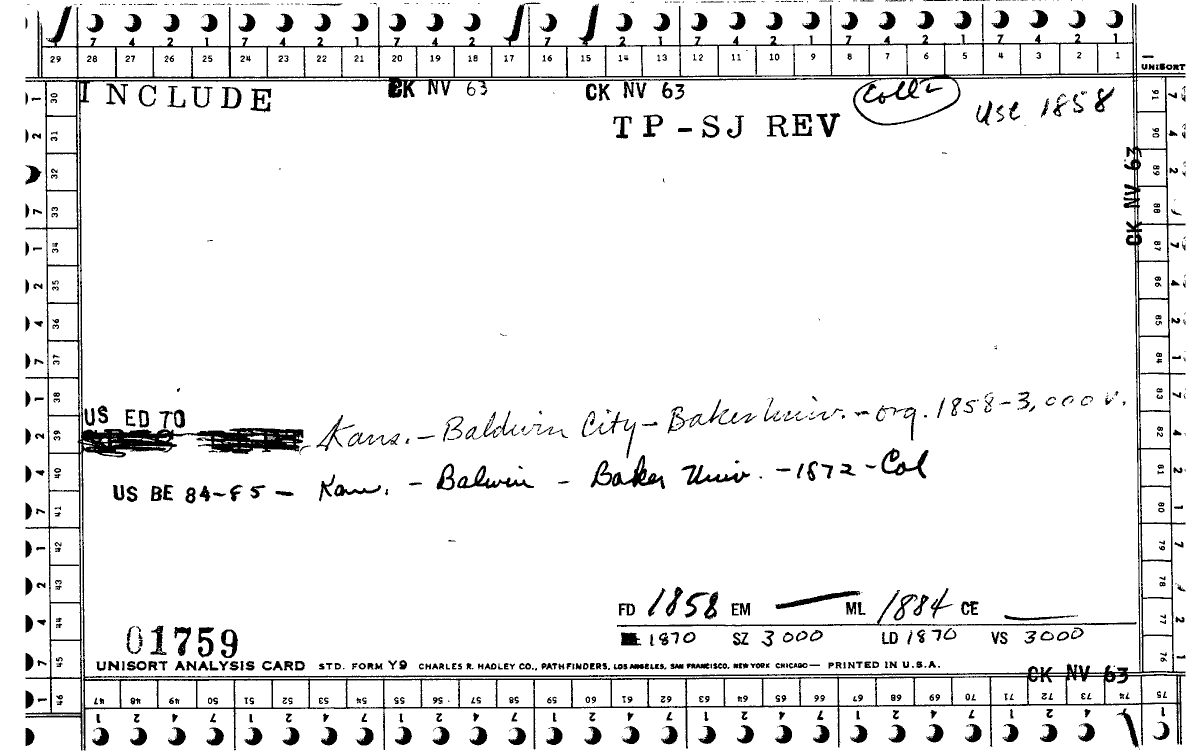 7 4 2 1 7 4 2 1 7 4 2 1 7 4 2 1 7 4 2 1 7 4 2 1 7 4 2 1
29 28 27 26 25 24 23 22 21 20 19 18 17 16 15 14 13 12 11 10 9 8 7 6 5 4 3 2 1
UNISORT
INCLUDE CK NV 63 CK NV 63 Coll use 1858
TP-SJ REV
CK NV 63
US ED 70 Kans. - Baldwin City - Baker Univ. - org. 1858-3,000 v.
US BE 84-85 - Kan. - Balwin - Baker Univ. - 1872 - Col
FD 1858 EM — ML 1884 CE
1870 SZ 3000 LD 1870 VS 3000
01759
UNISORT ANALYSIS CARD STD. FORM Y9 CHARLES R. HADLEY CO., PATHFINDERS, LOS ANGELES, SAN FRANCISCO, NEW YORK CHICAGO — PRINTED IN U.S.A.
CK NV 63
30 31 32 33 34 35 36 37 38 39 40 41 42 43 44 45 46
91 90 89 88 87 86 85 84 83 82 81 80 79 78 77 76 75
47 48 49 50 51 52 53 54 55 56 57 58 59 60 61 62 63 64 65 66 67 68 69 70 71 72 73 74
1 2 4 7 1 2 4 7 1 2 4 7 1 2 4 7 1 2 4 7 1 2 4 7 1 2 4